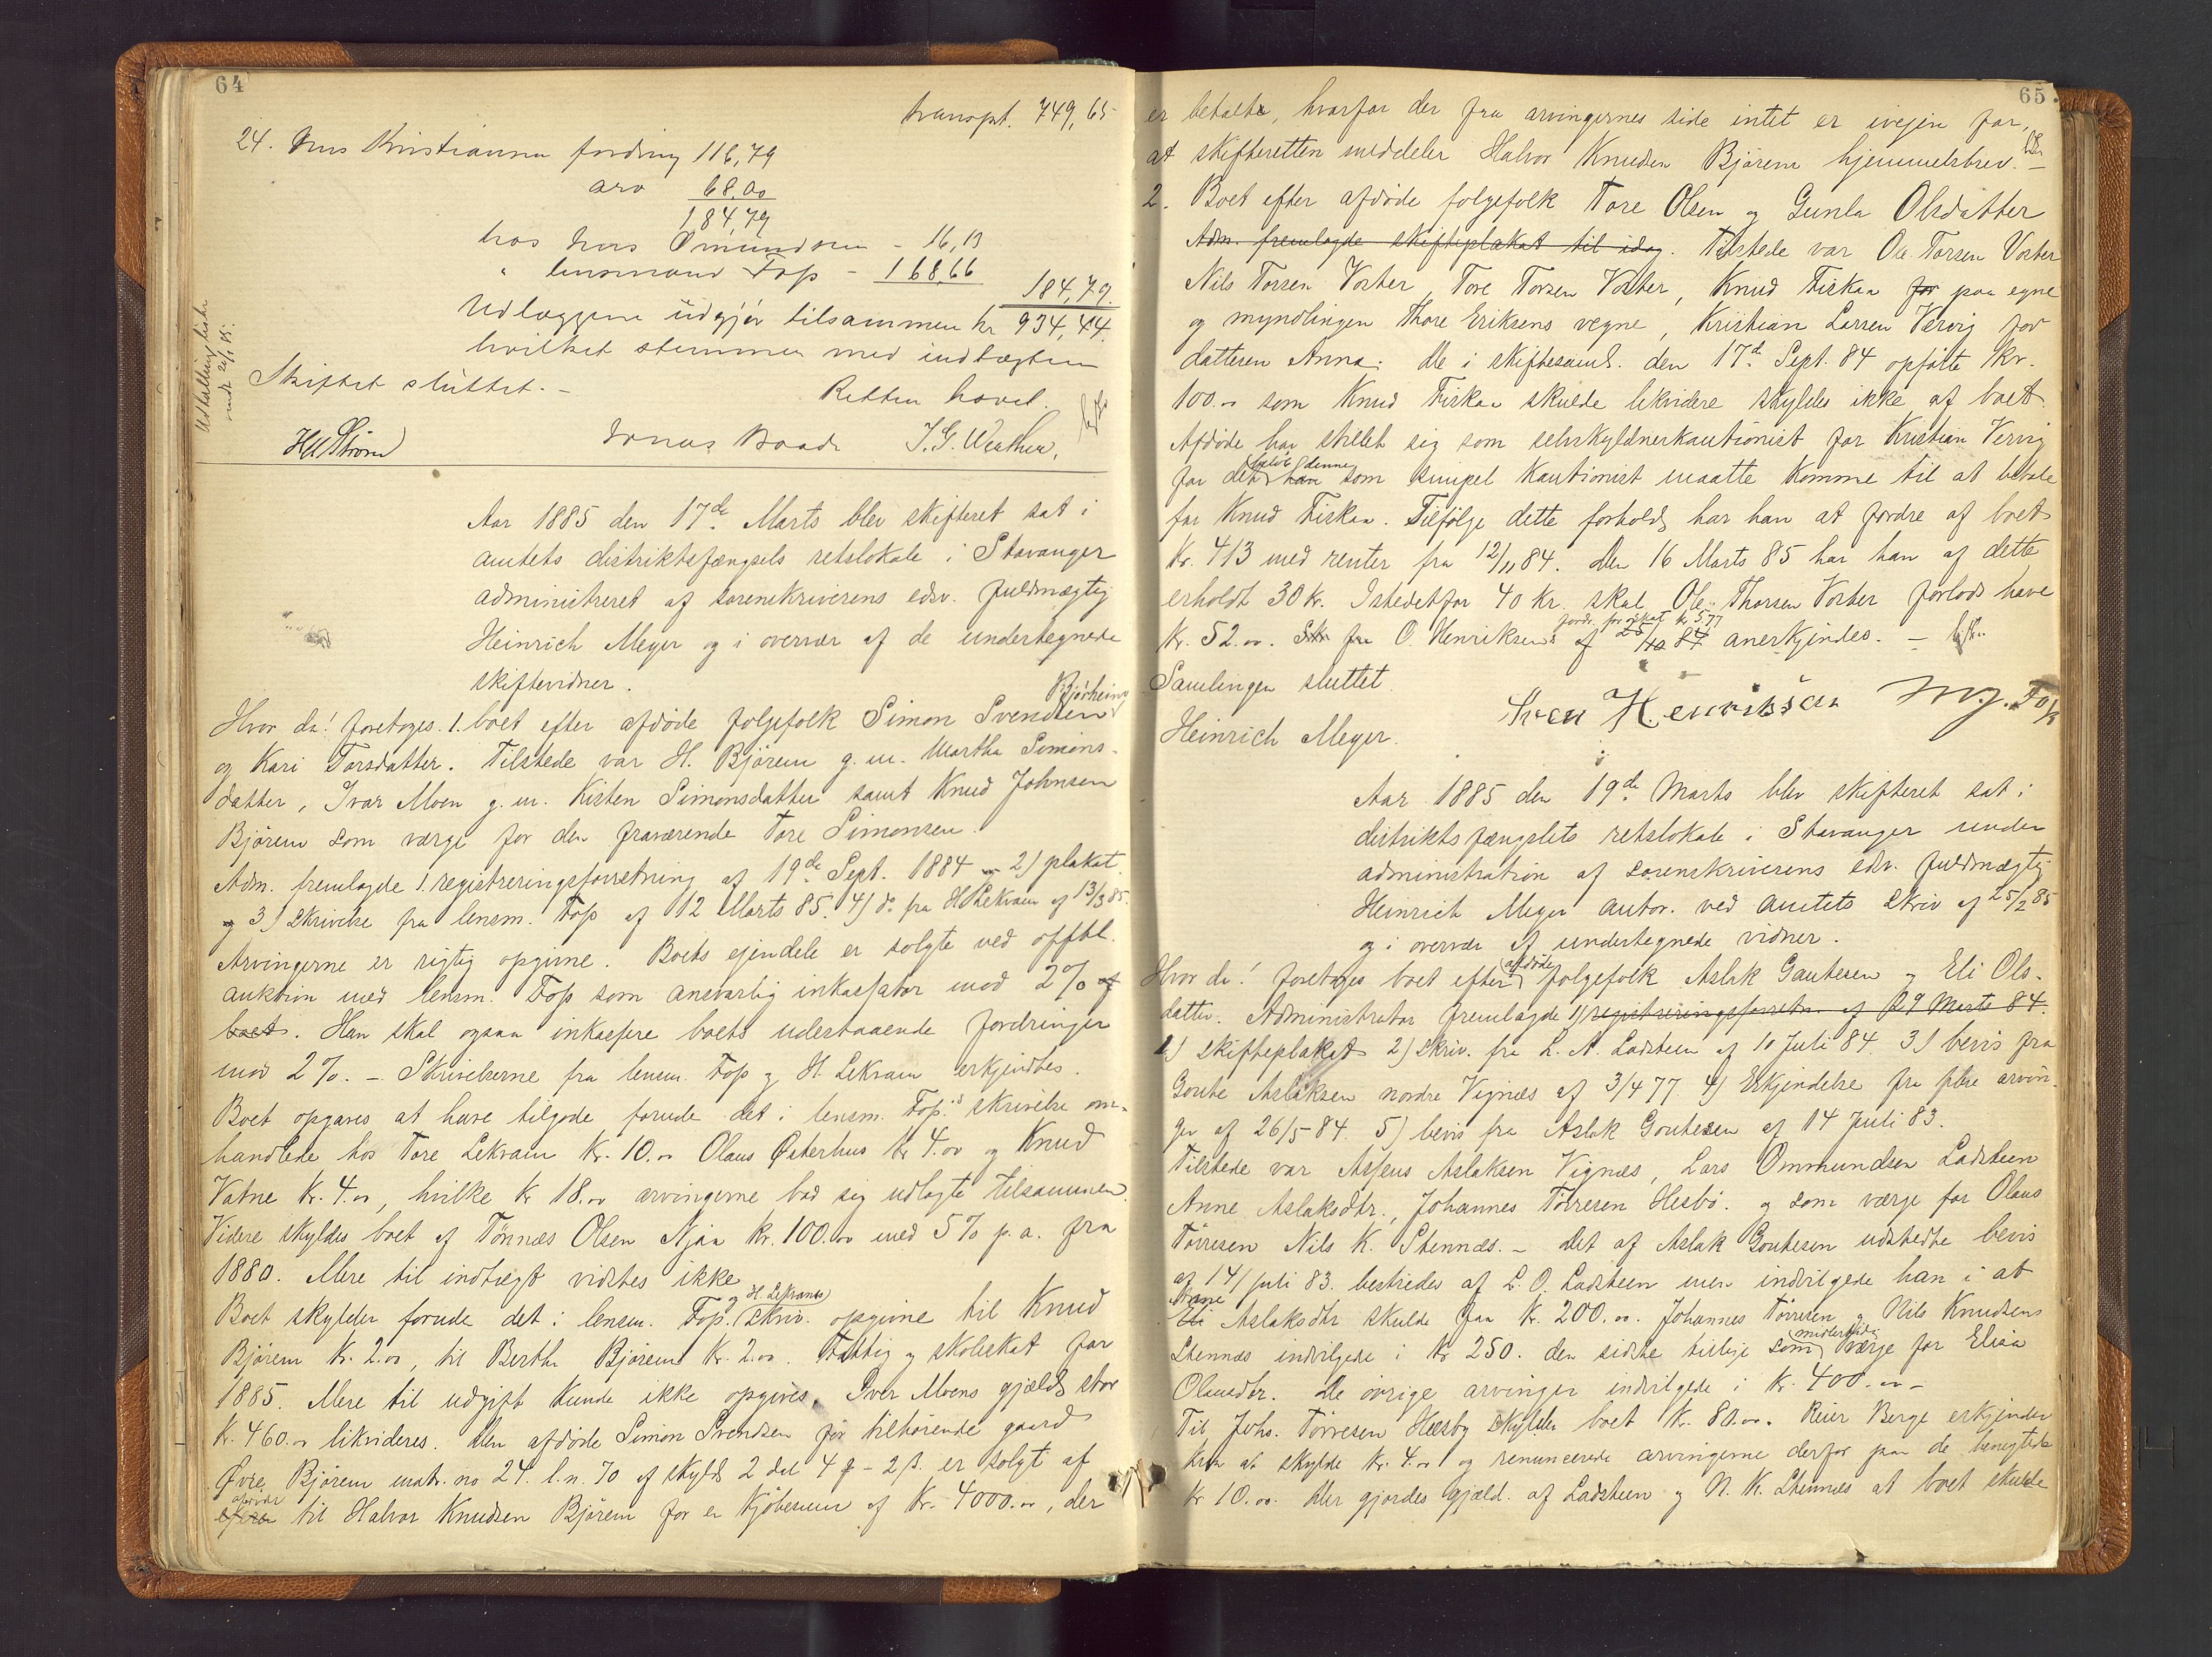 64
transpt. 749,65
24. Krus Kristiansen fordring 116,79
arv 68,00
184,79
hos Krus Omundsen - 16,13
" lensmand Foss - 168,66
184,79.
Udlæggene udgjør tilsammen kr 934,44.
hvilket stemmer med indtægten
Skiftet sluttet. -
Retten hævet.
Udstallingsliste
J. G. Weathers.
Aar 1885 den 17de Marts blev skifteret sat i
amtets distriktsfængsels retslokale i Stavanger
administreret af sorenskriverens edsv. fuldmægtig
Heinrich Meyer og i overvær af de undertegnede
skiftevidner.
Hvor da! foretoges. 1. boet efter afdøde folgefolk Simon Svendsen Bjørheim
og Kari Torsdatter. Tilstede var H. Bjørem g. m. Martha Simons-
datter, Ivar Moen g. m. Kisten Simonsdatter samt Knud Johnsen
Bjørem som værge for den fraværende Tore Simonsen.
Adm. fremlagde 1. registreringsforretning af 19de Sept. 1884 og 2) plakat
og 3) Skrivelse fra lensm. Foss af 12 Marts 85. 4) do fra H Lekvam af 13/3 85.
Arvingerne er rigtig opgivne. Boets ejendele er solgte ved offtl.
auktion med lensm. Foss som ansvarlig inkassator mod 2% af
boet. Han skal ogsaa inkassere boets udestaaende fordringer
mod 2%. - Skrivelserne fra lensm. Foss og H. Lekvam erkjendtes.
Boet opgaves at have tilgode forude det i lensm. Foss's skrivelse om-
handlede hos Tore Lekvam Kr. 10.00 Olaus Østerhus kr 4.00 og Knud
Vatne Kr. 4.00, hvilke Kr 18.00 arvingerne bad sig udlagte tilsammen.
Videre skyldes boet af Tønnæs Olsen Njaa kr. 100.00 med 5% p. a. fra
1880. Mere til indtægt vidstes ikke
Boet skylder forude det i lensm. Foss. og H. Lekvams skriv. opgivne til Knud
Bjørem Kr. 2.00, til Berthe Bjørem Kr. 2.00. Fattig og skoleskat for
1885. Mere til udgift kunde ikke opgives. Iver Moens gjæld stor
Kr. 460.00 likvideres. Den afdøde Simon Svendsen før tilhørende gaard
Øvre Bjørem matr. no 24. l. n. 70 af skyld 2 dal 4 ƒ - 2 ß. er solgt af
afdøde til Halvor Knudsen Bjørem for en Kjøbesum af Kr. 4000.00, der
65.
er betalte, hvorfor der fra arvingernes side intet er ivejen for,
at skifteretten meddeler Halvor Knudsen Bjørem hjemmelsbrev. -
2. Boet efter afdøde folgefolk Tore Olsen og Gunla Olsdatter
Adm. fremlagde skifteplakat til idag. Tilstede var Ole Torsen Voster
Nils Torsen Voster, Tore Torsen Voster, Knud Fiskaa for paa egne
og myndlingen Thore Eriksens vegne, Kristian Larsen Vervig for
datteren Anna. De i skiftesaml. den 17de Sept. 84 opførte Kr.
100.00 som Knud Fiskaa skulde likvidere skyldes ikke af boet.
Afdøde har stillet sig som selvskyldnerkautionist for Kristian Vervig
for det beløb denne han som simpel Kautionist maatte komme til at betale
for Knud Fiskaa. Tilfølge dette forhold har han at fordre af boet
Kr. 413 med renter fra 12/11 84. Den 16 Marts 85 har han af dette
erholdt 30 kr. Istedetfor 40 kr. skal Ole Thorsen Voster forlods have
Kr. 52.00. Skr fra O. Henriksens fordr. for skat kr 5.77 af 25/10 84 anerkjendes. -
Samlingen sluttet
Sven Henriksen
Heinrich Meyer.
Aar 1885 den 19de Marts blev skifteret sat i
distriktsfængslets retslokale i Stavanger under
administration af sorenskriverens edsv. fuldmægtig
Heinrich Meyer autor. ved amtets skriv af 25/2 85
og i overvær af undertegnede vidner.
Hvor da! foretoges boet efter afdøde folgefolk Aslak Gautesen og Eli Ols-
datter. Administrator fremlagde 1) registreringsforretn. af 29 Marts 84.
1) skifteplakat 2) skriv. fra L. A. Ladsteen af 10 Juli 84. 3) bevis fra
Goute Aslaksen nordre Vignæs af 3/4 77 4) Erkjendelse fra flere arvin-
ger af 26/5 84. 5) bevis fra Aslak Goutesen af 14 Juli 83.
Tilstede var Assens Aslaksen Vignæs, Lars Ommundsen Ladsteen
Anne Aslaksdtr., Johannes Tørresen Hesbø. og som værge for Olaus
Tørresen Nils K. Stennæs. - Det af Aslak Goutesen udstedte bevis
af 14/ juli 83. bestrides af L. O. Ladsteen men indvilgede han i at
Anne Eli Aslaksdtr skulde faa Kr. 200.00. Johannes Tørresen og Nils Knudsen
Stennæs indvilgede i Kr 250. den sidste tillige som midlertidig værge for Elisa
Olausdtr. De øvrige arvinger indvilgede i Kr. 400.00 -
Til Johs. Tørresen Hæsby skylder boet Kr. 80.00. Reier Berge erkjender
kun at skylde Kr. 4.00 og renuncerede arvingerne derfor paa de benegtede
Kr. 10.00. Der gjordes gjæld. af Ladsteen og N. K. Stennæs at boet skulde